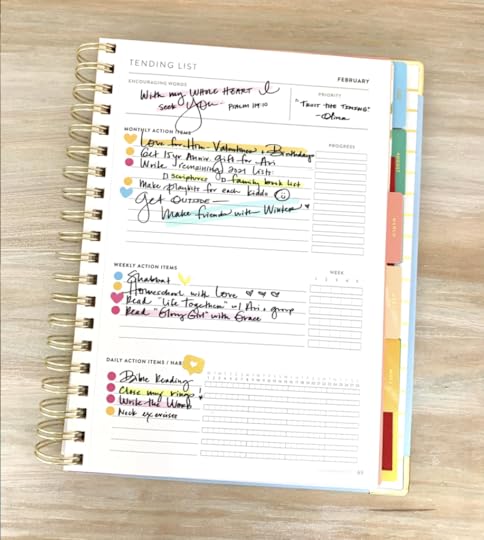 TENDING LIST
FEBRUARY
ENCOURAGING WORDS
With my WHOLE HEART I
seek You - PSALM 119:10
PRIORITY
"TRUST THE TIMING"
MONTHLY ACTION ITEMS
PROGRESS
Love for Him - Valentines + Birthday
Get 15yr Anniv. Gift for Ari
Write remaining 2021 Lists
Scriptures Family book list
Make playlists for each kiddo
Get OUTSIDE -
Make friends with Winter
WEEKLY ACTION ITEMS
WEEK
1 2 3 4 5
Shabbat
Homeschool with Love
Read "Life Together" w/ Ari + group
Read "Glory Girl" with Grace
DAILY ACTION ITEMS / HAB
Bible Reading
Close my rings
Write the Word
Neck exercises
AUGUST
MARCH